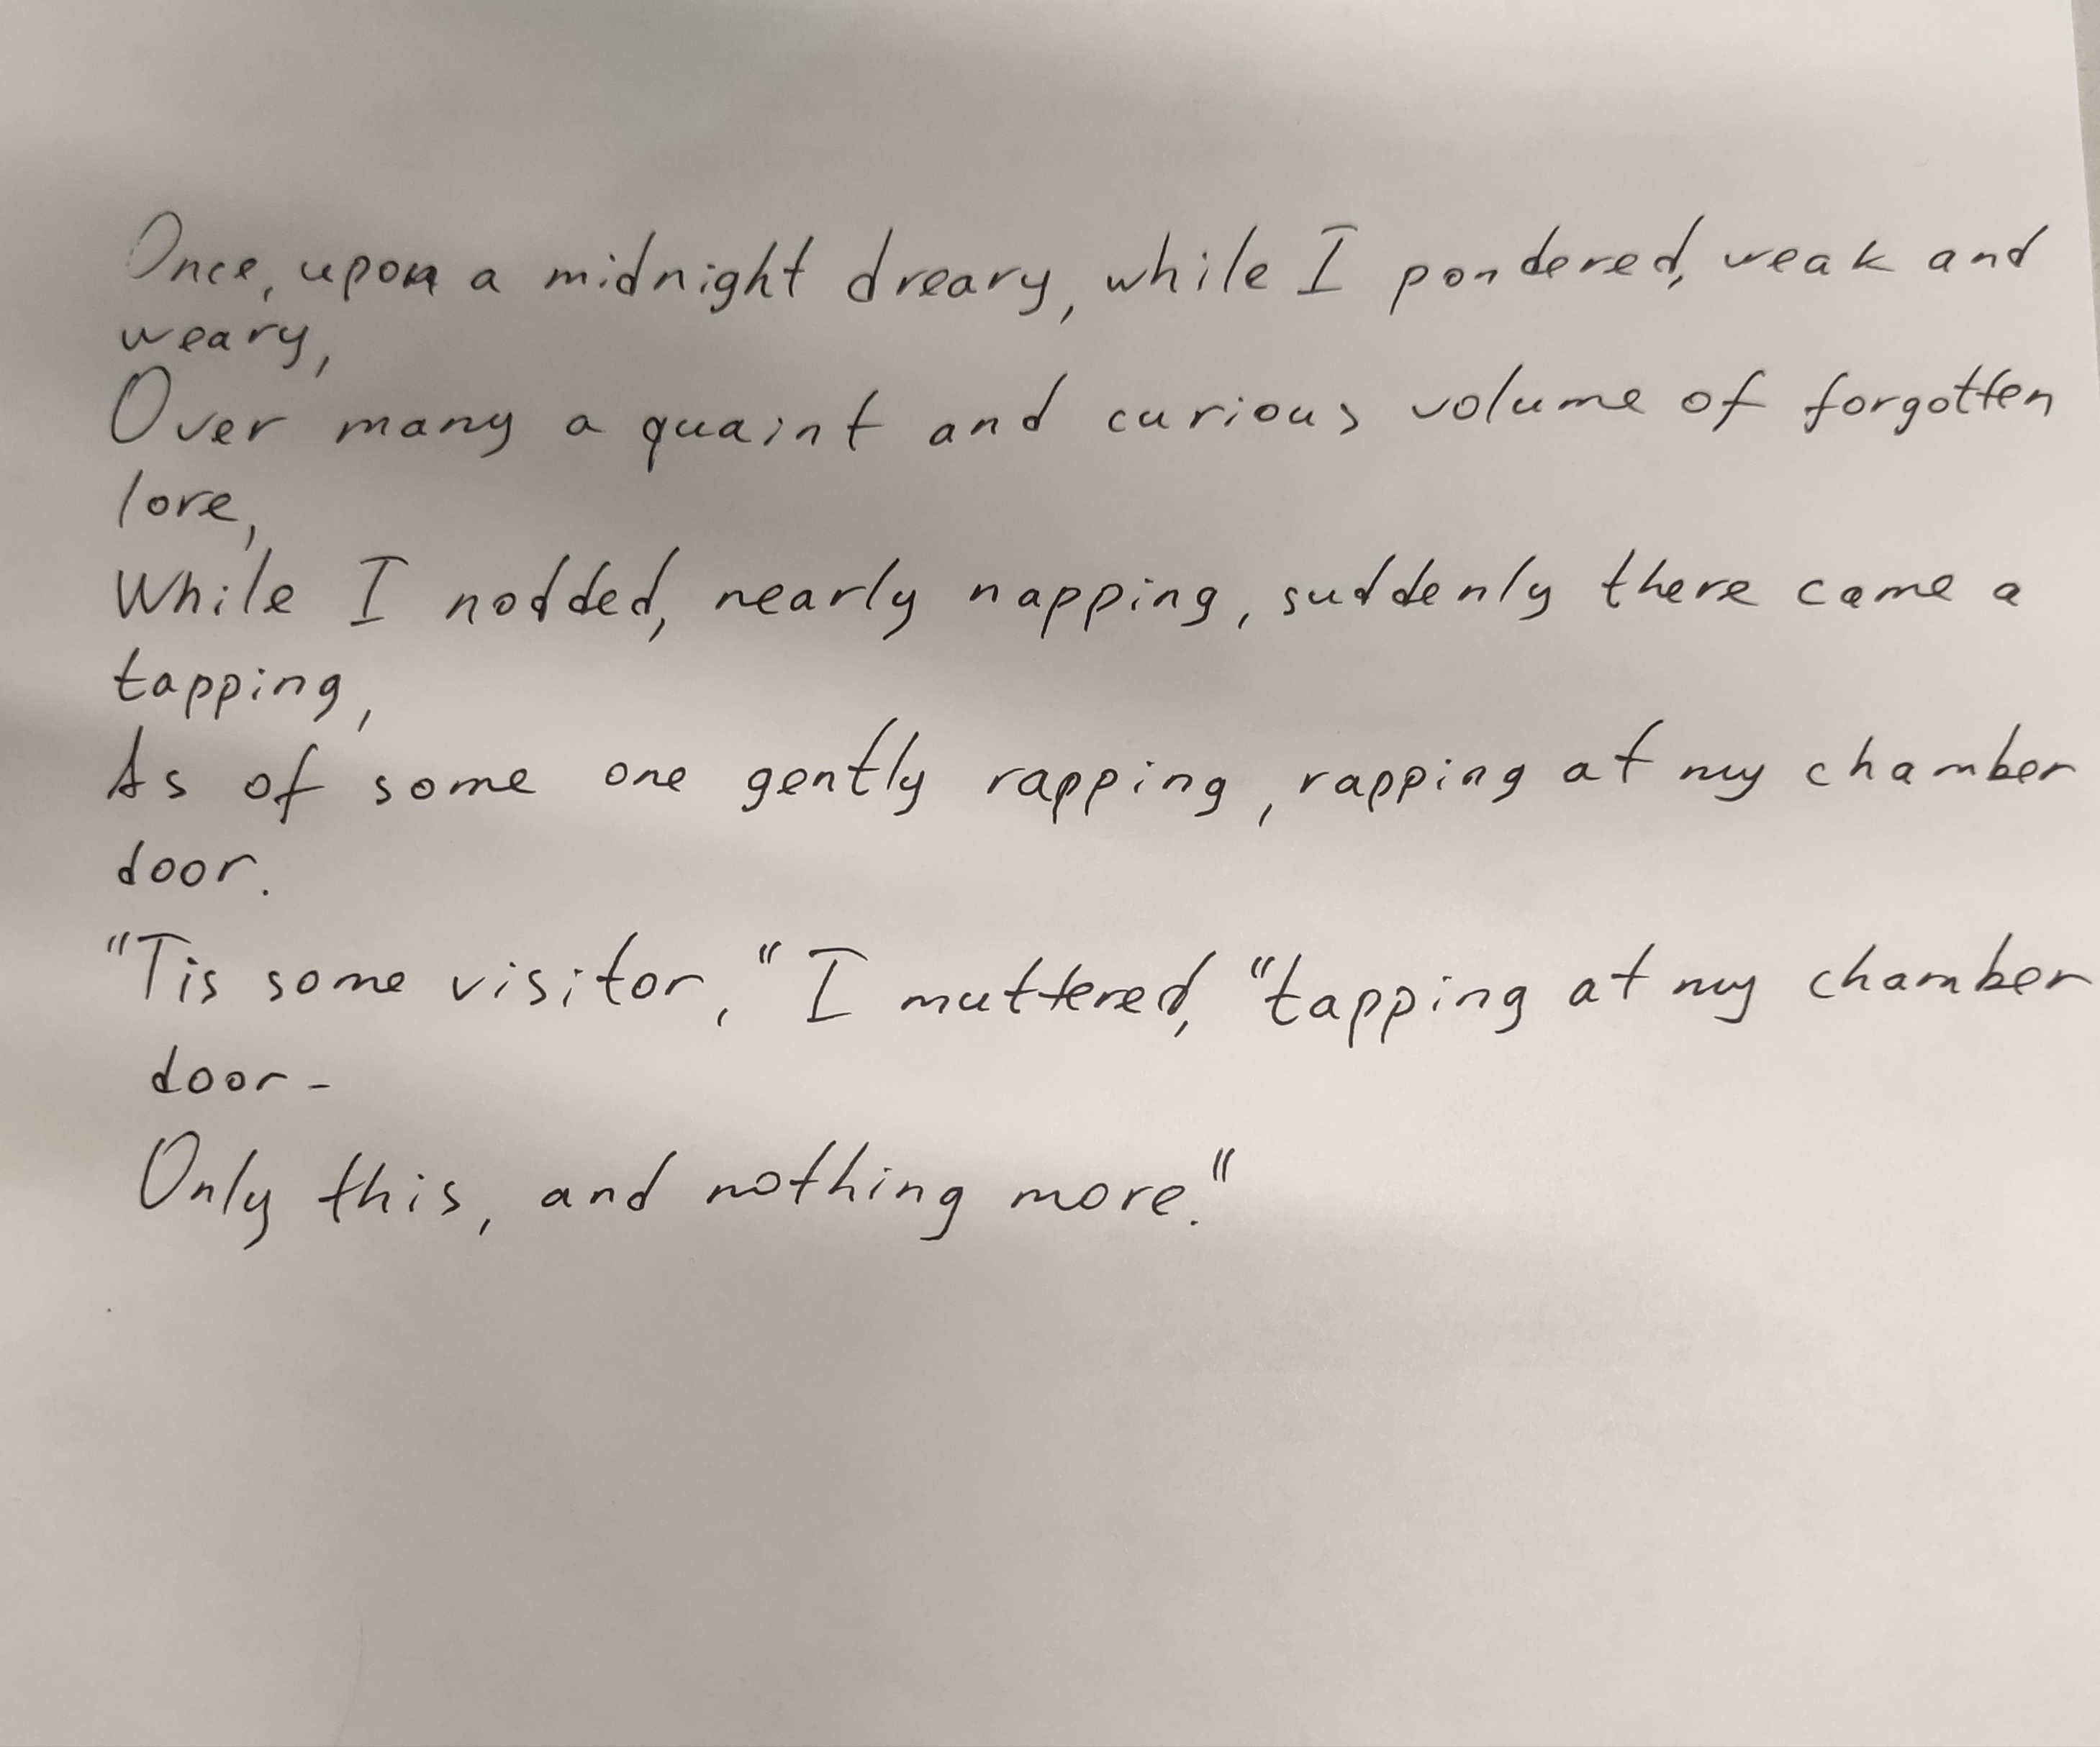 Once, upon a midnight dreary, while I pondered, weak and
weary,
Over many a quaint and curious volume of forgotten
lore,
While I nodded, nearly napping, suddenly there came a
tapping,
As of some one gently rapping, rapping at my chamber
door.
"Tis some visitor," I muttered, "tapping at my chamber
door-
Only this, and nothing more."